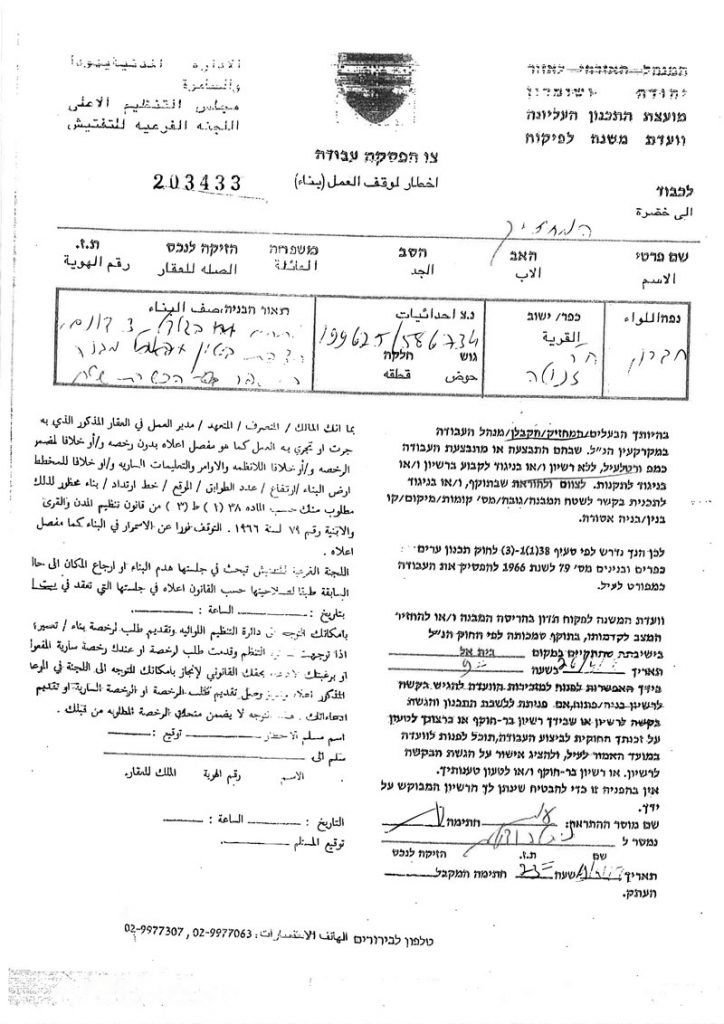 המנהל האזרחי לאזור
יהודה ושומרון
מועצת התכנון העליונה
וועדת משנה לפיקוח
الاداره المدنية يهودا
والسامرة
مجلس التنظيم الاعلى
اللجنه الفرعيه للتفتيش
צו הפסקת עבודה
اخطار لموقف العمل (بناء)
203433
לכבוד
الى حضرة
המחזיק
שם פרטי האב הסב משפחה הזיקה לנכס ת.ז.
الاسم الاب الجد العائلة الصله للعقار رقم الهوية
נפה/اللواء
חברון
כפר/ ישוב
القرية
ח'
זנוטה
נ.צ احداثيات
199625/586734
גוש חלקה
حوض قطعه
תאור הבניה/صف البناء
בהיותך הבעלים/המחזיק/הקבלן/מנהל העבודה
במקרקעין הנ"ל. שבהם התבצעה או מתבצעת העבודה
כמפורט לעיל, ללא רשיון ו/או בניגוד לקבוע ברשיון ו/או
בניגוד לתקנות, לצווים ולהוראות שבתוקף, ו/או בניגוד
לתכנית בקשר לשטח המבנה/גובה/מס' קומות/מיקום/קו
בנין/בניה אסורה.
לכן הנך נדרש לפי סעיף 38(1)(1-3) לחוק תכנון ערים
כפרים ובנינים מס' 79 לשנת 1966 להפסיק את העבודה
כמפורט לעיל.
וועדת המשנה לפקוח תדון בהריסת המבנה ו/או להחזיר
המצב לקדמותו, בתוקף סמכותה לפי החוק הנ"ל
בישיבתה שתתקיים במקום בית אל
תאריך בשעה
בידך האפשרות לפנות למזכירות הוועדה להגיש בקשה
לרשיון בניה/פתוח, אם פניתה ללשכת התכנון והגשת
בקשה לרשיון או שבידך רשיון בר-תוקף או ברצונך לטעון
על זכותך החוקית לביצוע העבודה, תוכל לפנות לוועדה
במועד האמור לעיל, ולהציג אישור על הגשת הבקשה
לרשיון. או רשיון בר-תוקף ו/או לטעון טענותיך.
אין בהפניה זו כדי להבטיח שינתן לך הרשיון המבוקש על
ידך.
שם מוסר ההתראה: חתימה
נמסר ל
שם ת.ז. הזיקה לנכס
תאריך שעה חתימה המקבל
העתק.
بما انك المالك / المتصرف / المتعهد / مدير العمل في العقار المذكور الذي به
جرت او تجري به العمل كما هو مفصل اعلاه بدون رخصه و/أو خلافا لمضمر
الرخصه و/أو خلافا للانظمه والاوامر والتعليمات الساريه و/او خلافا للمخطط
ارض البناء /ارتفاع / عدد الطوابق / الموقع / خط ارتداد / بناء محظور لذلك
مطلوب منك حسب الماده ٣٨ (١) ط (٣) من قانون تنظيم المدن والقرى
والابنية رقم ٧٩ لسنة ١٩٦٦ . التوقف فورا عن الاستمرار في البناء كما مفصل
اعلاه .
اللجنة الفرعية للتفتيش تبحث في جلستها هدم البناء او ارجاع المكان الى حالا
السابقة طبقا لصلاحيتها حسب القانون اعلاه في جلستها التي تعقد في
بتاريخ : الساعة :
بامكانك التوجه الى دائرة التنظيم اللوائيه وتقديم طلب لرخصة بناء /
اذا توجهت التنظيم وقدمت طلب لرخصة او عندك رخصة سارية المفعوا
او برغبتك بحقك القانوني لإنجاز بامكانك للتوجه الى اللجنة في
المذكور اعلاه تقديم طلب الرخصة او الرخصة السارية او تقديم
ادعاءاتك . هذا التوجه لا يضمن منحك الرخصة المطلوبه من قبلك .
اسم مسلم الاخطار توقيع :
سلم الى
الاسم رقم الهوية المالك للعقار.
التاريخ : الساعة :
توقيع المستلم
טלפון לבירורים الهاتف الاستفسارات : 02-9977063 , 02-9977307